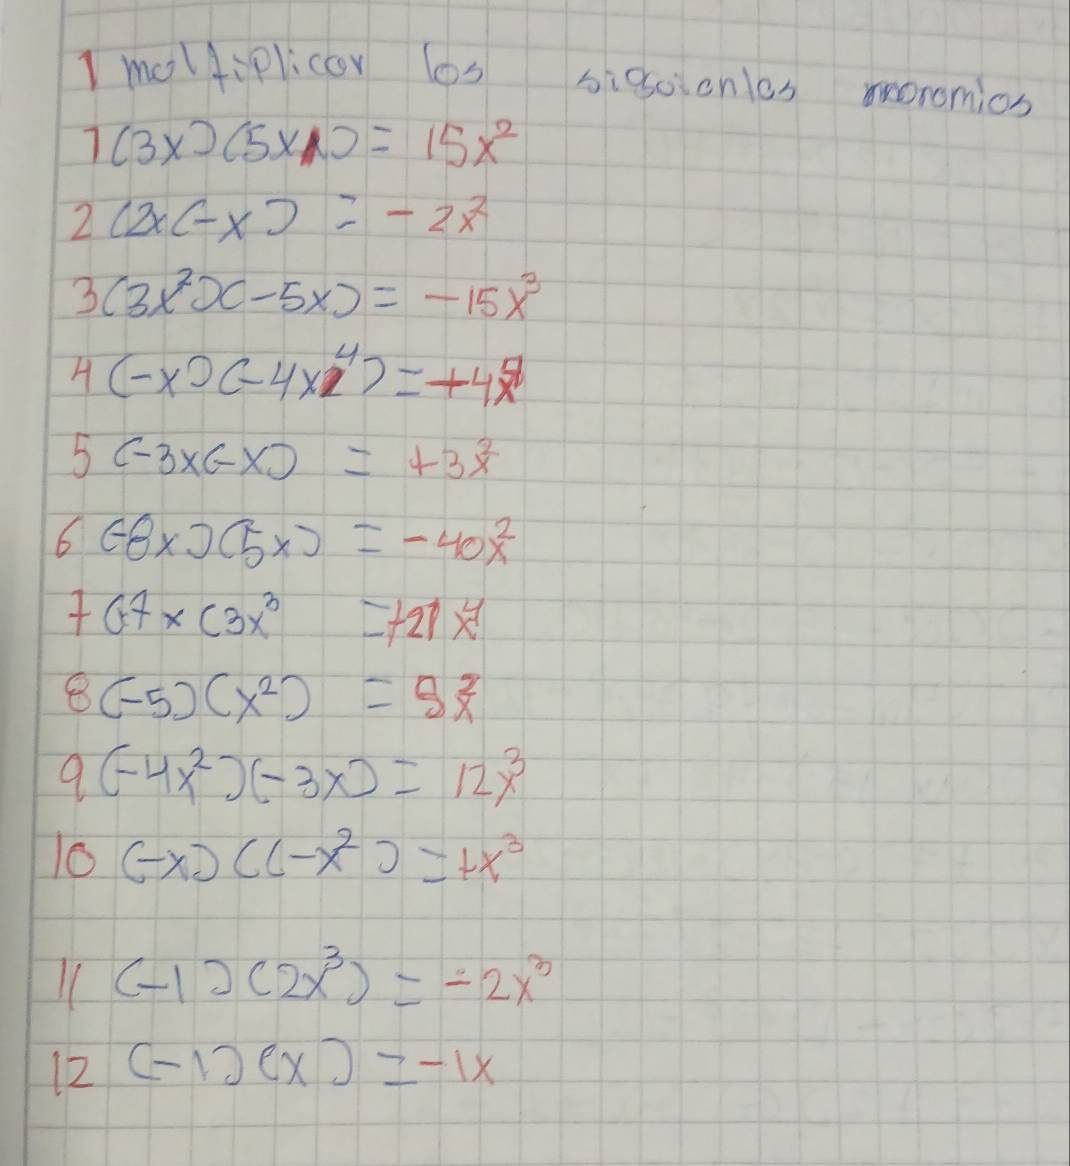 1 moltiplicar los siguientes monomios
1 (3x)(5x) = 15x²
2 (2x(-x) = -2x²
3 (3x²)(-5x) = -15x³
4 (-x)(-4x⁴) = +4x⁵
5 (-3x(-x) = +3x²
6 (-8x)(5x) = -40x²
7 (-7x(3x³ = +21x⁴
8 (-5)(x²) = 5x²
9 (-4x²)(-3x) = 12x³
10 (-x)((-x²) = +x³
11 (-1)(2x³) = -2x³
12 (-1)(x) = -1x